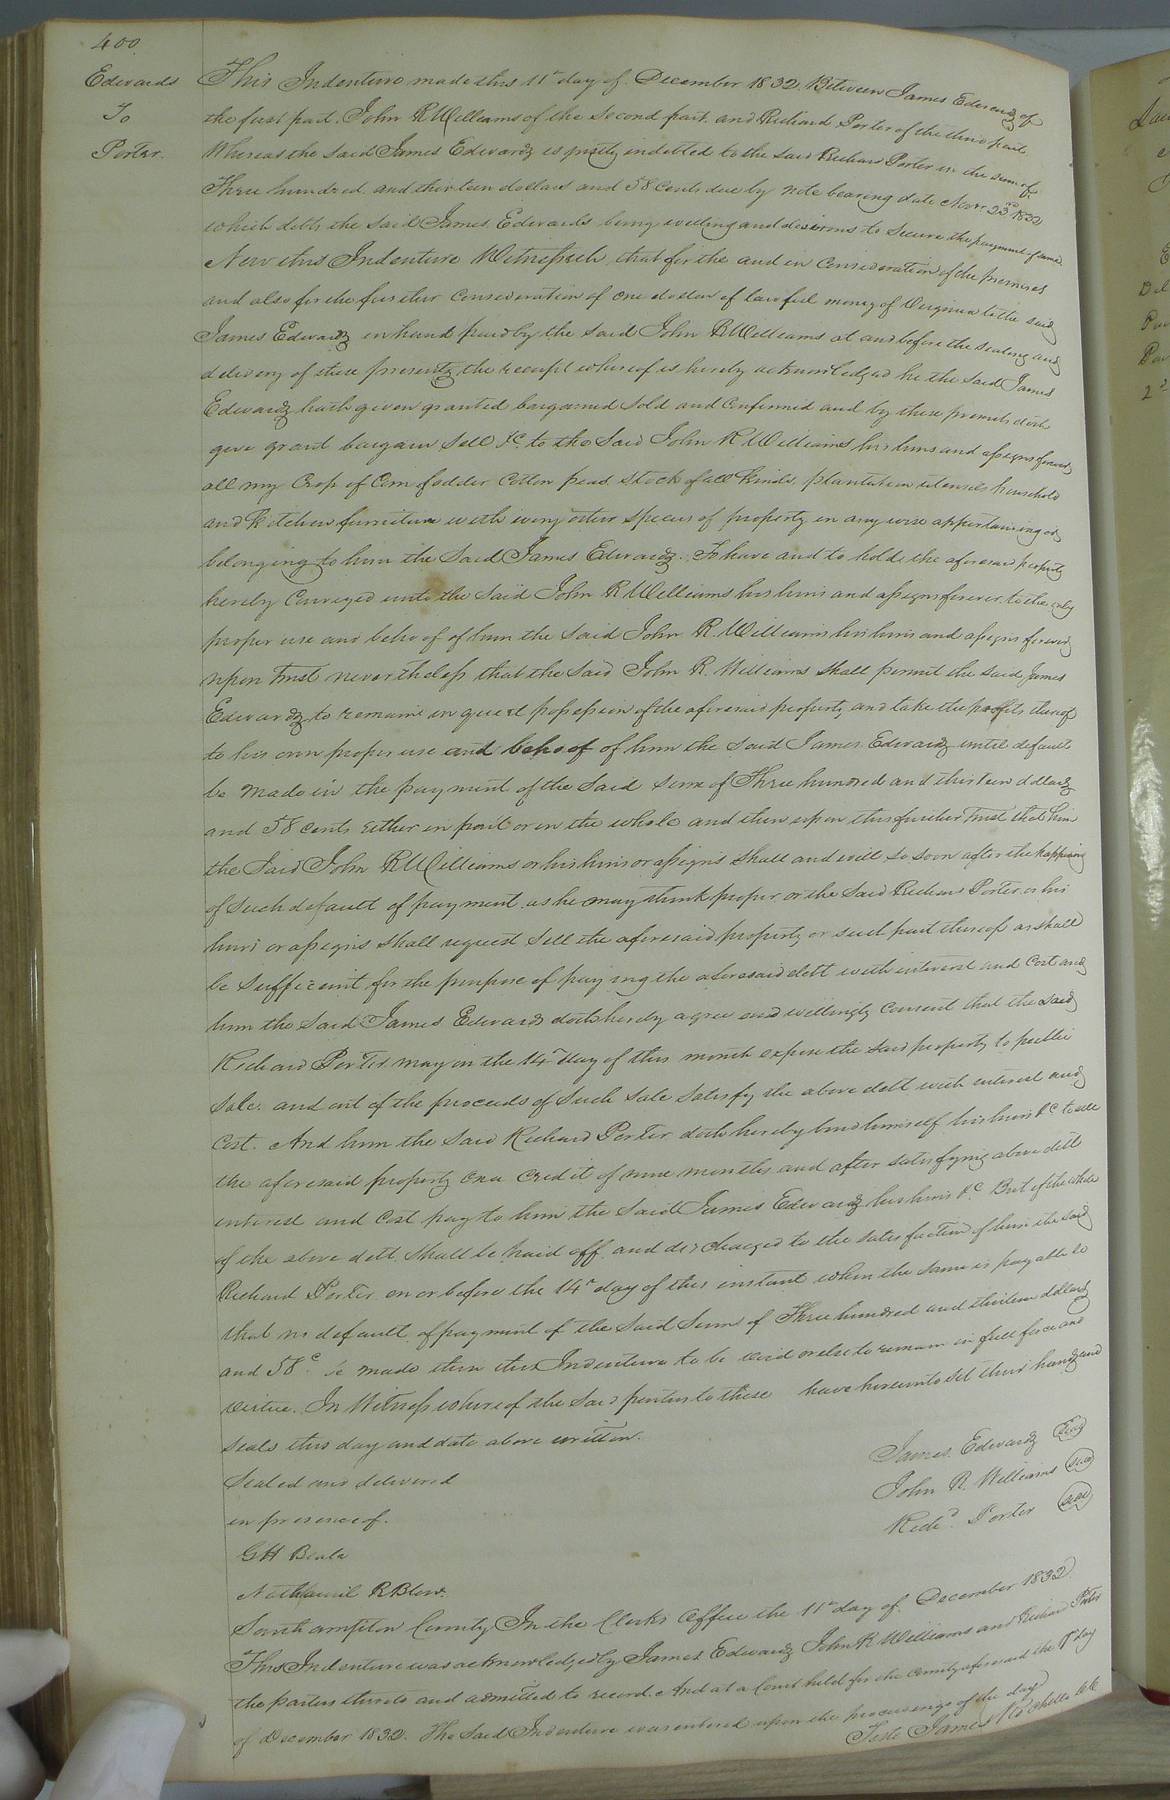 400
Edwards
To
Porter.
This Indenture made this 11th day of December 1832 Between James Edwards of
the first part. John R Williams of the second part and Richard Porter of the third part
Whereas the said James Edwards is justly indebted to the said Richard Porter in the sum of
Three hundred and thirteen dollars and 58 Cents due by note bearing date Novr. 23rd 1832
which debt, the said James Edwards being willing and desirous to secure the payment of
Now this Indenture Witnesseth, that for the and in Consideration of the premises
and also for the further Consideration of one dollar of lawful money of Virginia to the said
James Edwards in hand paid by the said John R Williams at and before the sealing and
delivery of these presents, the receipt whereof is hereby acknowledged he the said James
Edwards hath given granted bargained sold and confirmed and by these presents doth
give grant bargain sell &c. to the said John R Williams his heirs and assigns forever
all my Crop of Corn fodder Cotton peas stock of all kinds, plantation utensils household
and kitchen furniture with every other species of property in any wise appertaining or
belonging to him the said James Edwards. To have and to hold the aforesaid property
hereby Conveyed unto the said John R Williams his heirs and assigns forever to the only
proper use and behoof of him the said John R. Williams his heirs and assigns forever
upon trust nevertheless that the said John R. Williams shall permit the said James
Edwards to remain in quiet possession of the aforesaid property and take the profits thereof
to his own proper use and behoof of him the said James Edwards until default
be made in the payment of the said sum of Three hundred and thirteen dollars
and 58 cents either in part or in the whole and then upon this further trust that him
the said John R Williams or his heirs or assigns shall and will so soon after the happening
of such default of payment as he may think proper or the said Richard Porter or his
heirs or assigns shall request sell the aforesaid property or such part thereof as shall
be sufficient for the purpose of paying the aforesaid debt with interest and Cost and
him the said James Edwards doth hereby agree and willingly consent that the said
Richard Porter may on the 14th day of this month expose the said property to public
sale. and out of the proceeds of such sale satisfy the above debt with interest and
Cost. And him the said Richard Porter doth hereby bind himself his heirs &c to sell
the aforesaid property on a credit of nine months and after satisfying above debt
interest and Cost pay to him the said James Edwards his heirs &c. But if the whole
of the above debt shall be paid off and discharged to the satisfaction of him the said
Richard Porter on or before the 14th day of this instant when the same is payable so
that no default of payment of the said sum of Three hundred and thirteen dollars
and 58c. is made then this Indenture to be void or else to remain in full force and
virtue. In Witness whereof the said parties to these have hereunto set their hands and
seals this day and date above written.
James Edwards Seal
Sealed and delivered
John R. Williams Seal
in presence of.
Richd. Porter Seal
GH Beale
Nathaniel R Blow.
Southampton County In the Clerks Office the 11th day of December 1832
This Indenture was acknowledged by James Edwards John R Williams and Richard Porter
the parties thereto and admitted to record. And at a Court held for the County aforesaid the day
of December 1832. The said Indenture was entered upon the proceedings of the day
Teste James Rochelle CC